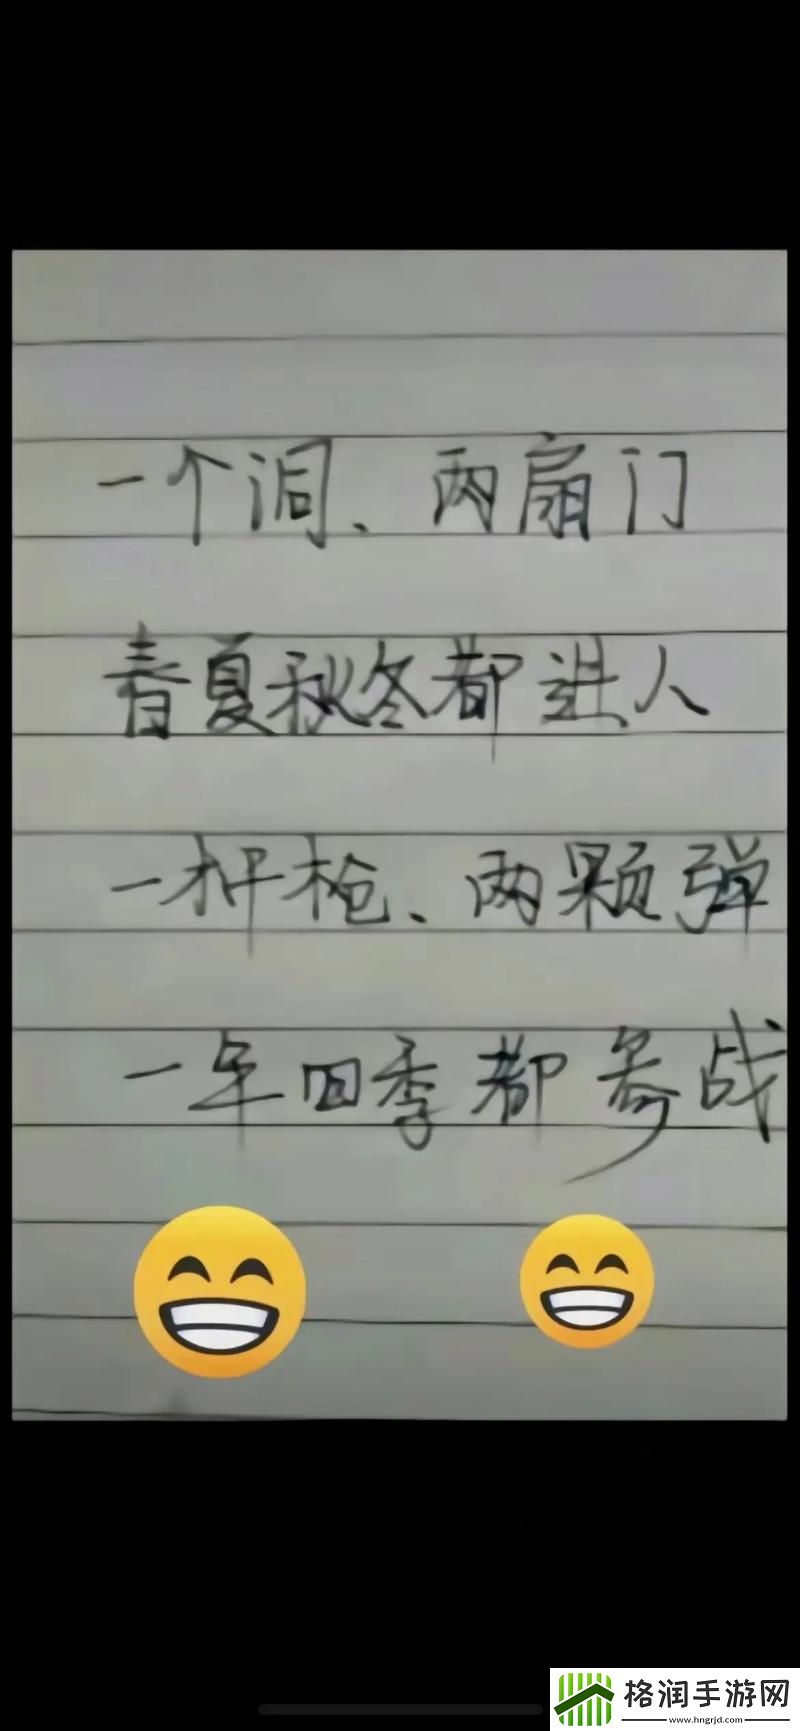 一个洞、两扇门
春夏秋冬都进人
一杆枪、两颗弹
一年四季都参战
格润手游网
www.hngrjd.com